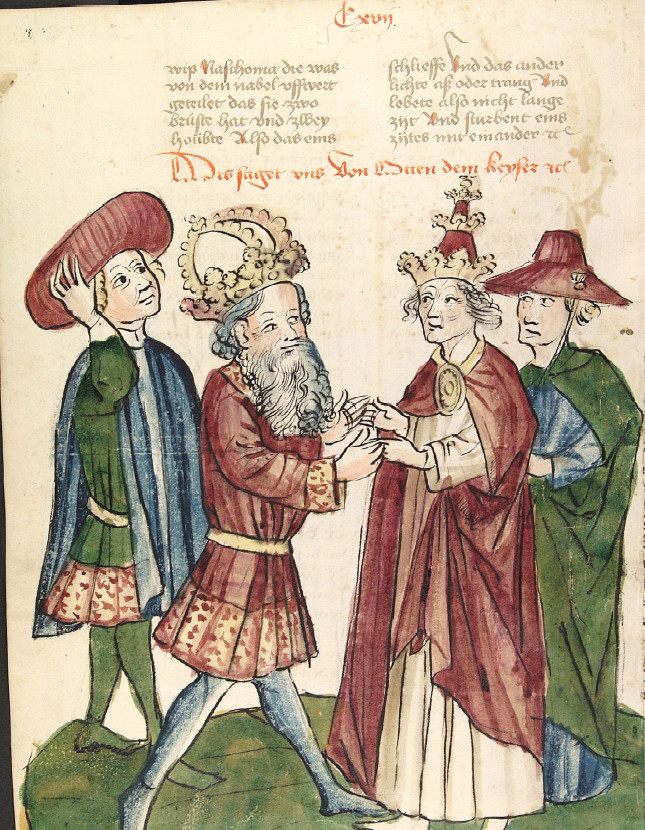 Cxvij
wip Naschoma die was
von dem nabel vffwert
geteilet das sie zwo
brüste hat vnd zwey
höubte Also das eins
schlieffe Vnd das ander
lichte aß oder trang Vnd
lebete also nicht lange
zyt Vnd sturbent eins
zÿtes mit einander ꝛc
Dis saget vns Von Otten dem keyser ꝛc